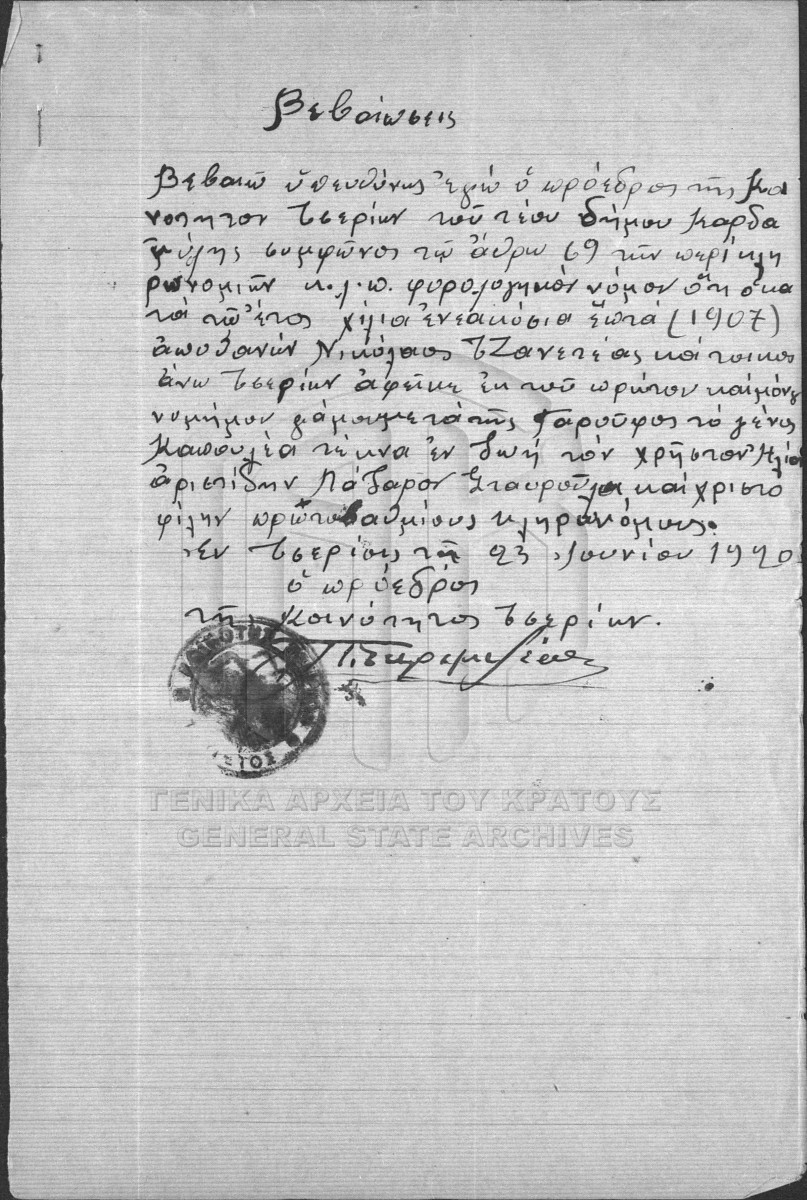 Βεβαίωσεις
Βεβαιῶ ὑπευθύνως ἐγώ ὁ πρόεδρος τῆς Κοι
νοτητον Τσερίων τοῦ τέου δήμου Καρδα
μύλης συμφῶνος τῶ ἄθρω 69 τῆν περί κλη
ρωνομιῶν κ.λ.π. φορολογηκόν νόμον ὅτη ὁ κα
τά τῶ ἔτος χίλια ἐνεακόσια ἑπτά (1907)
ἀποθανών Νικόλαος Τζανετέας κάτοικος
ἄνω Τσερίων ἀφεῖκε ἐκ τοῦ πρώτου καί μόνου
νομήμου γάμου μετά τῆς Γαρούφος τό γένος
Καπουλέα τέκνα ἐν ζωή τόν χρῆστον Ηλία
ἀριστίδην Λάζαρον Σταυροῦλα καί χριστο
φίλην πρώτοβαθμίους κληρωνόμους.
Ἐν Τσερίοις τῆ 23 Ἰουνίου 1920
ὁ πρόεδρός
τῆς Κοινότητος Τσερίων.
ΓΕΝΙΚΑ ΑΡΧΕΙΑ ΤΟΥ ΚΡΑΤΟΥΣ
GENERAL STATE ARCHIVES